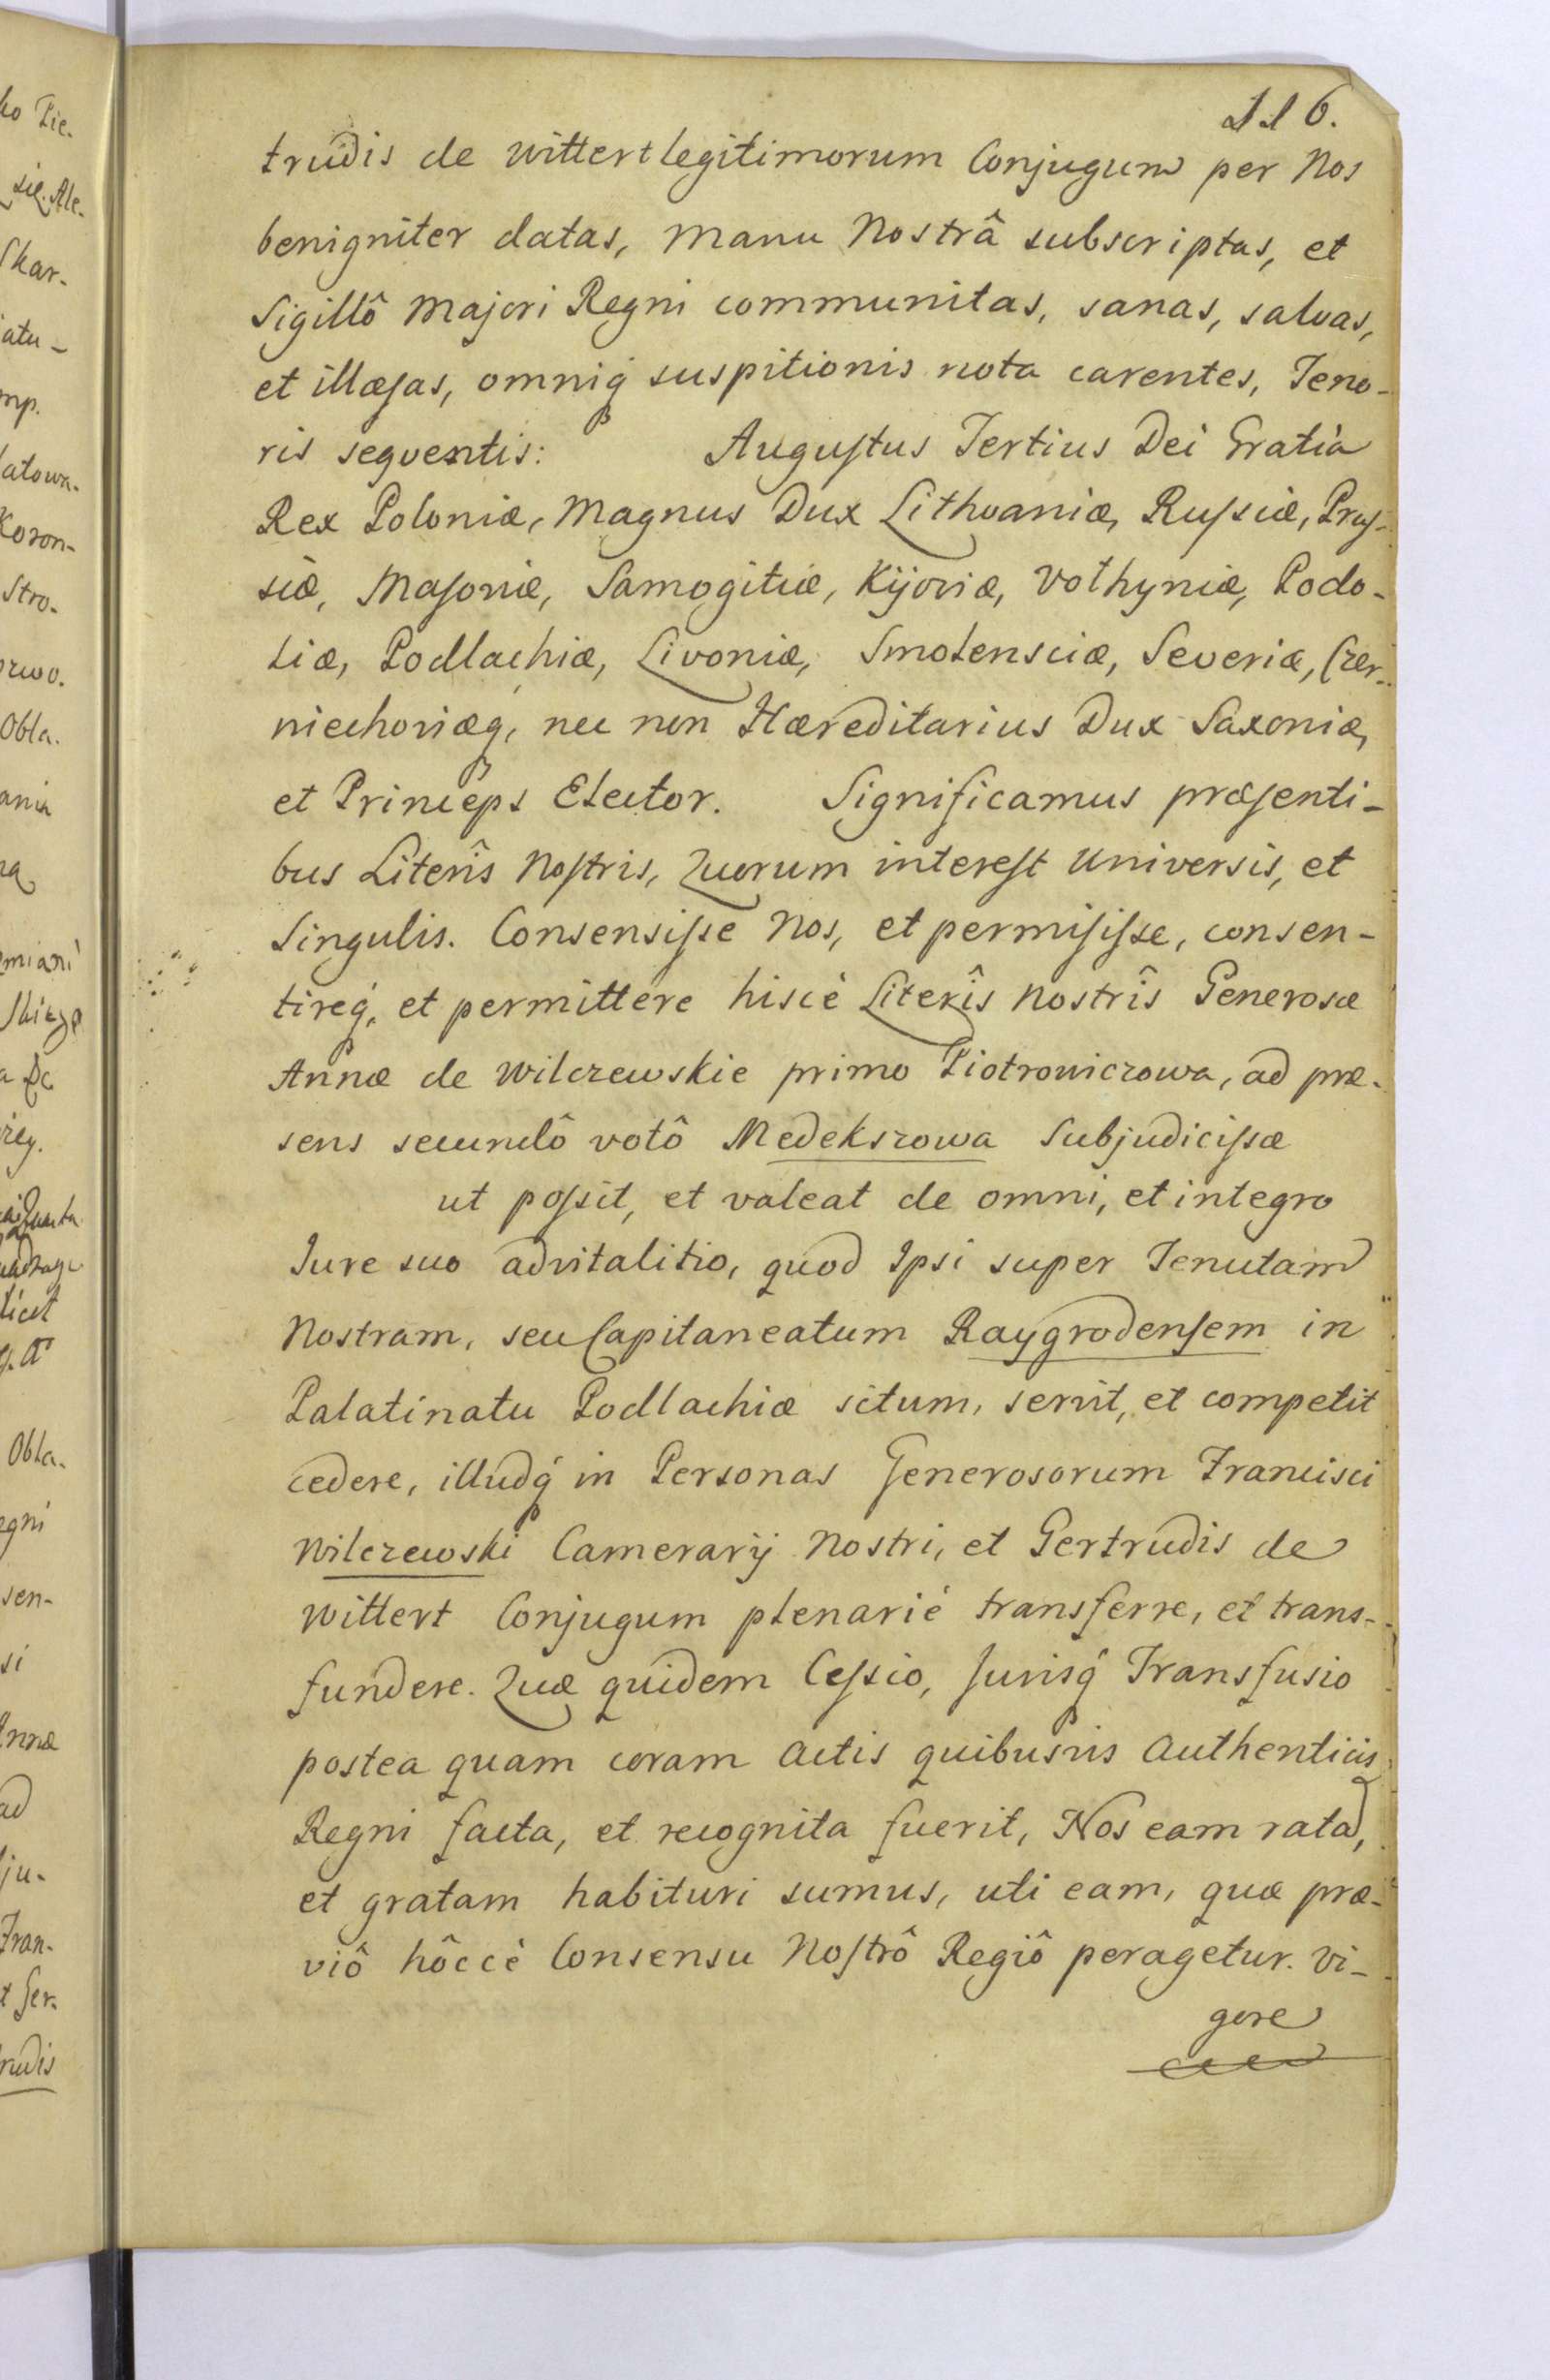 116.
trudis de Wittert legitimorum Conjugum per Nos
benigniter datas, manu Nostrâ subscriptas, et
Sigillô Majori Regni communitas, sanas, salvas,
et illæsas, omniq́ suspitionis nota carentes, Teno-
ris seqventis: Augustus Tertius Dei Gratia
Rex Poloniæ, Magnus Dux Lithvaniæ, Russiæ, Prus-
siæ, Masoviæ, Samogitiæ, Kijoviæ, Volhyniæ, Podo-
liæ, Podlachiæ, Livoniæ, Smolensciæ, Severiæ, Czer-
niechoviæq, nec non Hæreditarius Dux Saxoniæ,
et Princeps Elector. Significamus præsenti-
bus Literîs Nostris, Quorum interest Universis, et
Singulis. Consensisse Nos, et permisisse, consen-
tireq́, et permittere hiscè Literîs Nostrîs Generosæ
Annæ de Wilczewskie primo Piotrowiczowa, ad præ-
sens secundô votô Medekszowa Subjudicissæ
ut possit, et valeat de omni, et integro
Jure suo advitalitio, quod Ipsi super Tenutam
Nostram, seu Capitaneatum Raygrodensem in
Palatinatu Podlachiæ situm, servit, et competit
cedere, illudq́ in Personas Generosorum Francisci
Wilczewski Camerarÿ Nostri, et Gertrudis de
Wittert Conjugum plenariè transferre, et trans-
fundere. Quæ quidem Cessio, Jurisq́ Transfusio
postea quam coram Actis quibusvis Authenticis
Regni facta, et recognita fuerit, Nos eam ratã,
et gratam habituri sumus, uti eam, quæ præ-
viô hôccè Consensu Nostrô Regiô peragetur. Vi-
gore